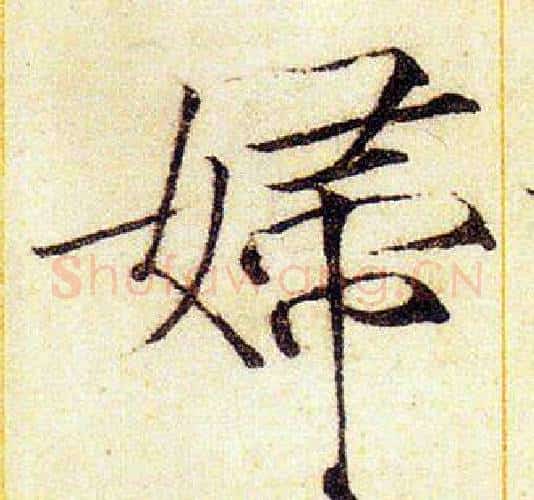 婦
Shufawang.CN